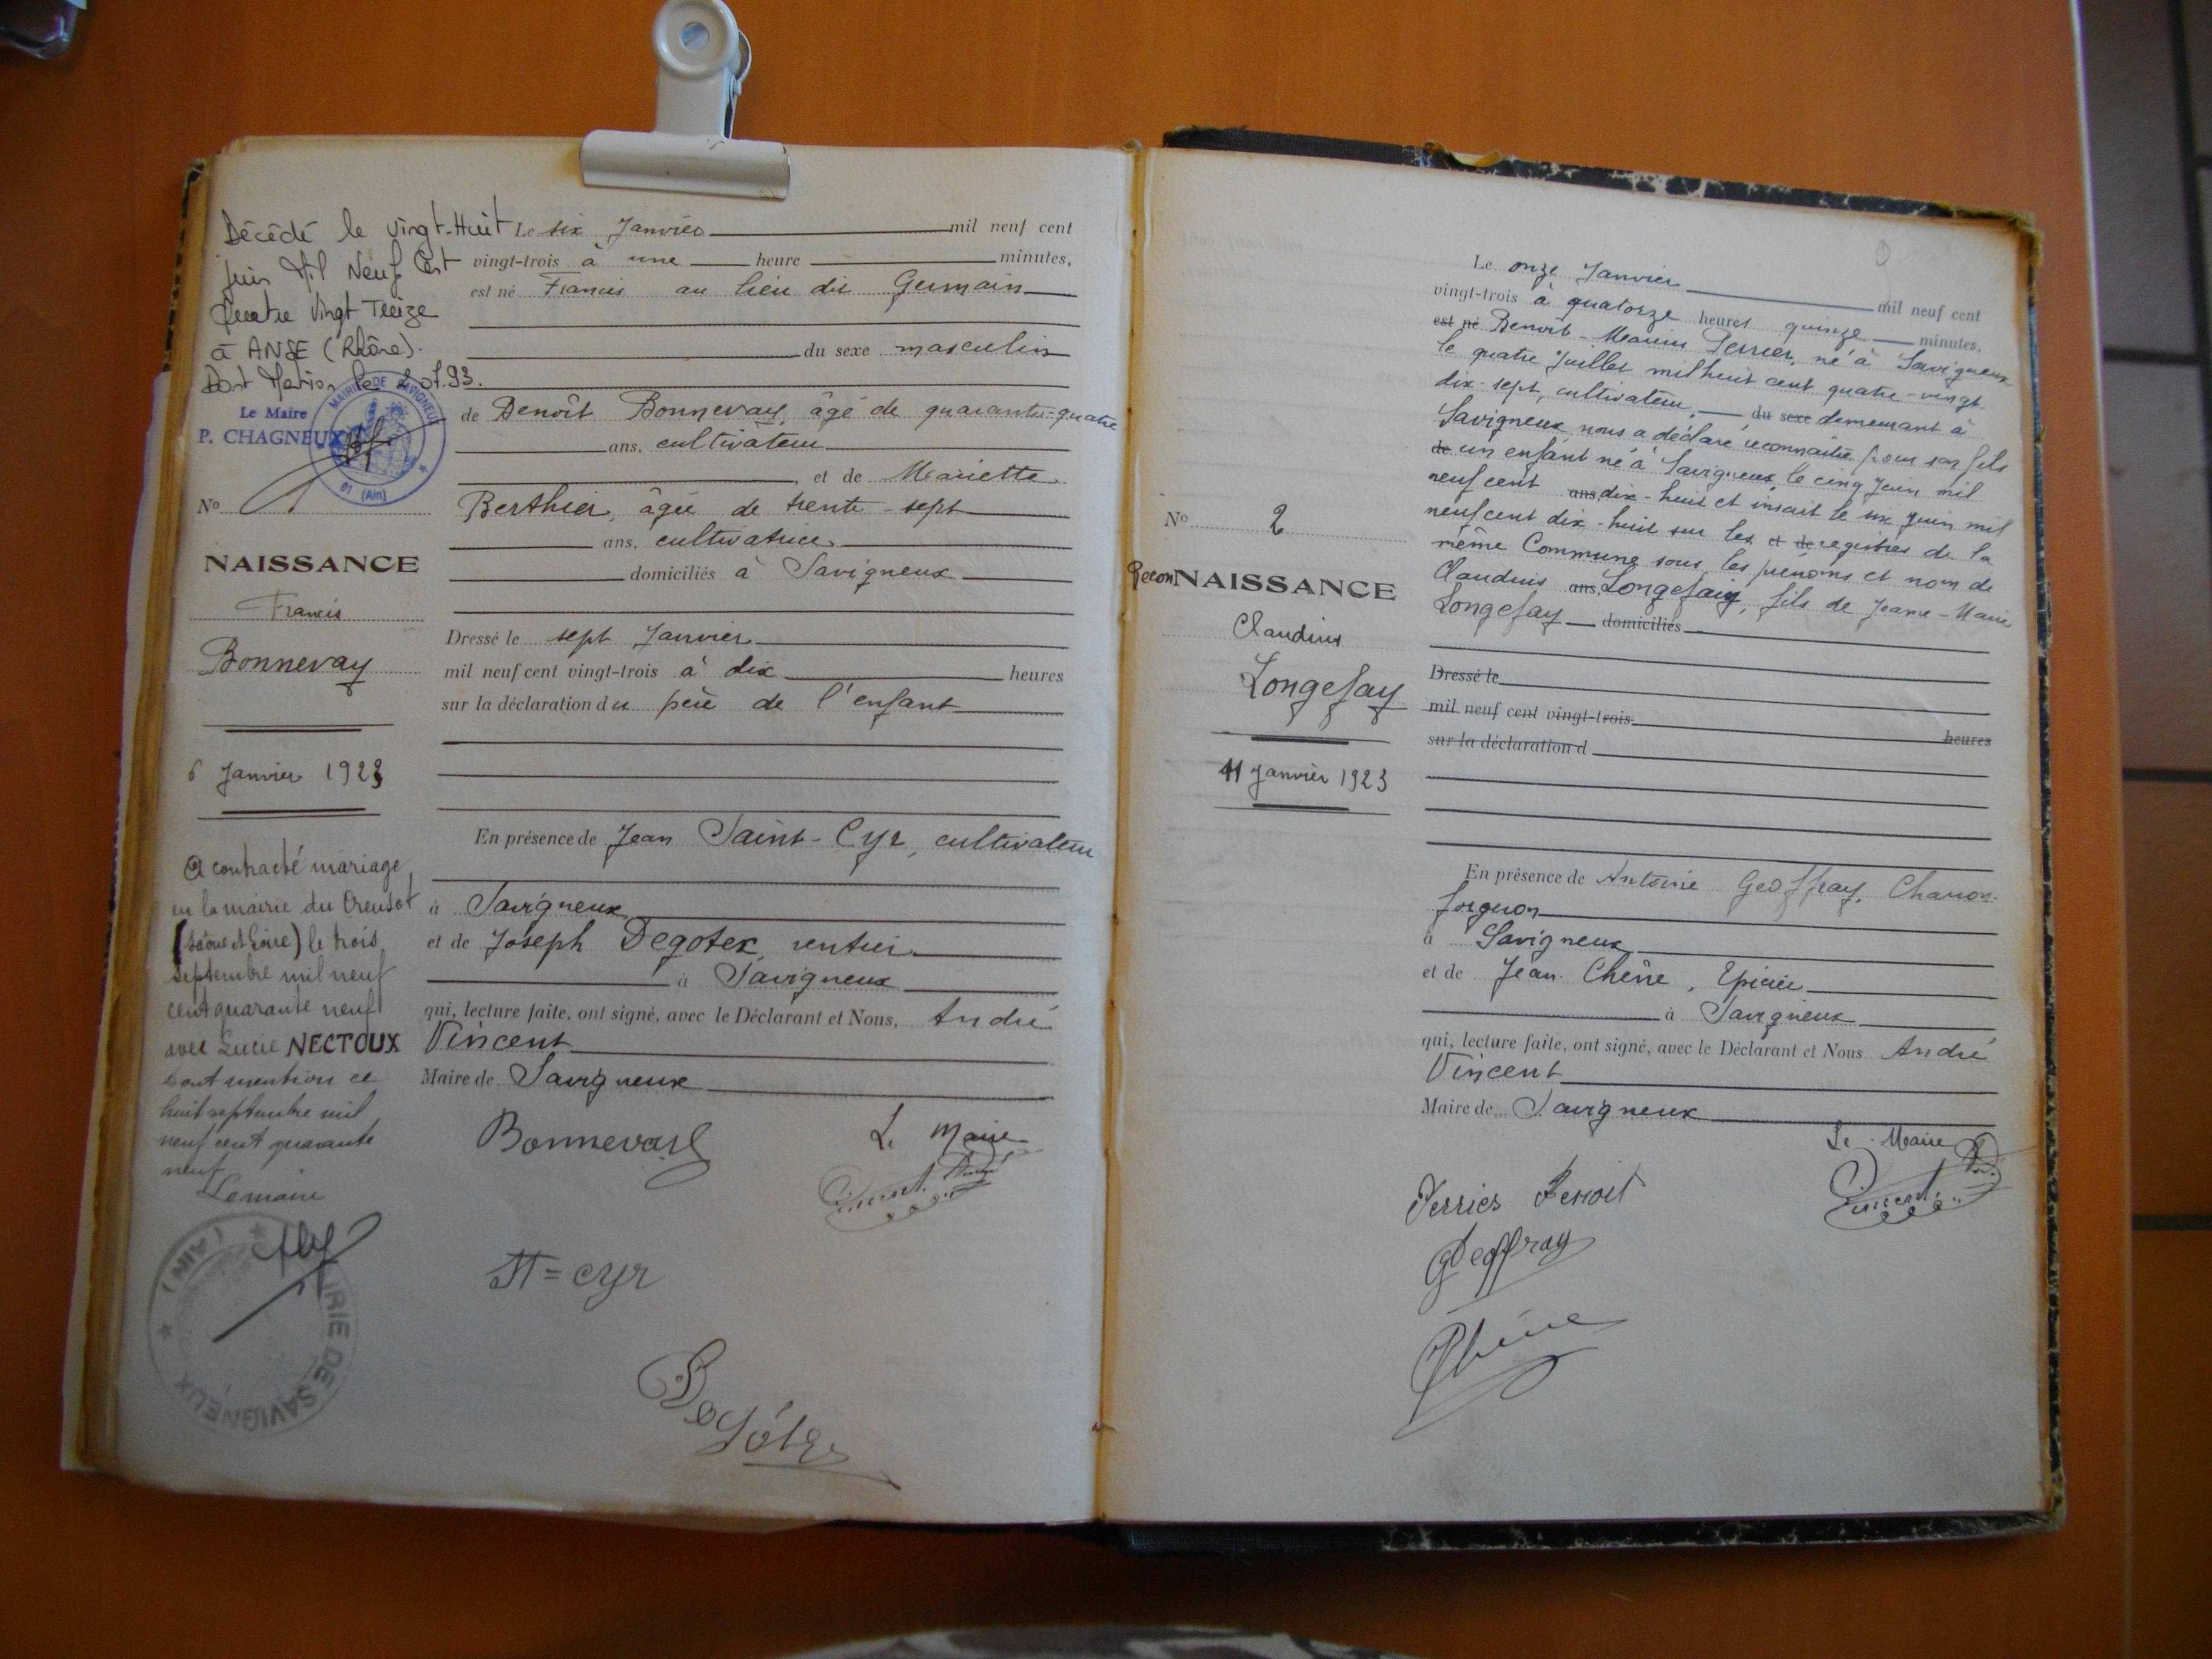 Décédé le vingt-Huit
Juin Mil Neuf Cent
Quatre Vingt Treize
à ANSE (Rhône).
Dont Mention le 2.07.93.
Le Maire
P. CHAGNEUX
MAIRIE DE SAVIGNEUX
01 (Ain)
No
NAISSANCE
Francis
Bonnevay
6 Janvier 1923
A contracté mariage
en la mairie du Creusot
(Saône et Loire) le trois
septembre mil neuf
cent quarante neuf
avec Lucie NECTOUX
Dont mention ce
huit septembre mil
neuf cent quarante
neuf
Le maire
MAIRIE DE SAVIGNEUX (AIN)
Le six Janvier mil neuf cent
vingt-trois à une heure minutes,
est né Francis au lieu dit Germain
du sexe masculin
de Benoît Bonnevay, âgé de quarante-quatre
ans, cultivateur
, et de Mariette
Berthier, âgée de trente-sept
ans, cultivatrice
domiciliés à Savigneux
Dressé le sept Janvier
mil neuf cent vingt-trois à dix heures
sur la déclaration du père de l'enfant
En présence de Jean Saint-Cyr, cultivateur
à Savigneux
et de Joseph Degotex, rentier
à Savigneux
qui, lecture faite, ont signé, avec le Déclarant et Nous, André
Vincent
Maire de Savigneux
Bonnevay
Le Maire
Vincent André
St=cyr
No 2
ReconNAISSANCE
Claudius
Longefay
11 Janvier 1923
Le onze Janvier mil neuf cent
vingt-trois à quatorze heures quinze minutes,
est né Benoît-Marius Perrier, né à Savigneux
le quatre Juillet mil huit cent quatre-vingt-
dix-sept, cultivateur, du sexe demeurant à
Savigneux nous a déclaré reconnaître pour son fils
de un enfant né à Savigneux, le cinq Juin mil
neuf cent ans dix-huit et inscrit le six Juin mil
neuf cent dix-huit sur les et de registres de la
même Commune sous les prénoms et nom de
Claudius ans, Longefay, fils de Jeanne-Marie
Longefay domiciliés
Dressé le
mil neuf cent vingt-trois
heures
sur la déclaration d
En présence de Antoine Geoffray, Charron-
forgeron
à Savigneux
et de Jean Chêne, Epicier
à Savigneux
qui, lecture faite, ont signé, avec le Déclarant et Nous André
Vincent
Maire de Savigneux
Le Maire
Vincent André
Perrier Benoit
Geoffray
Chêne